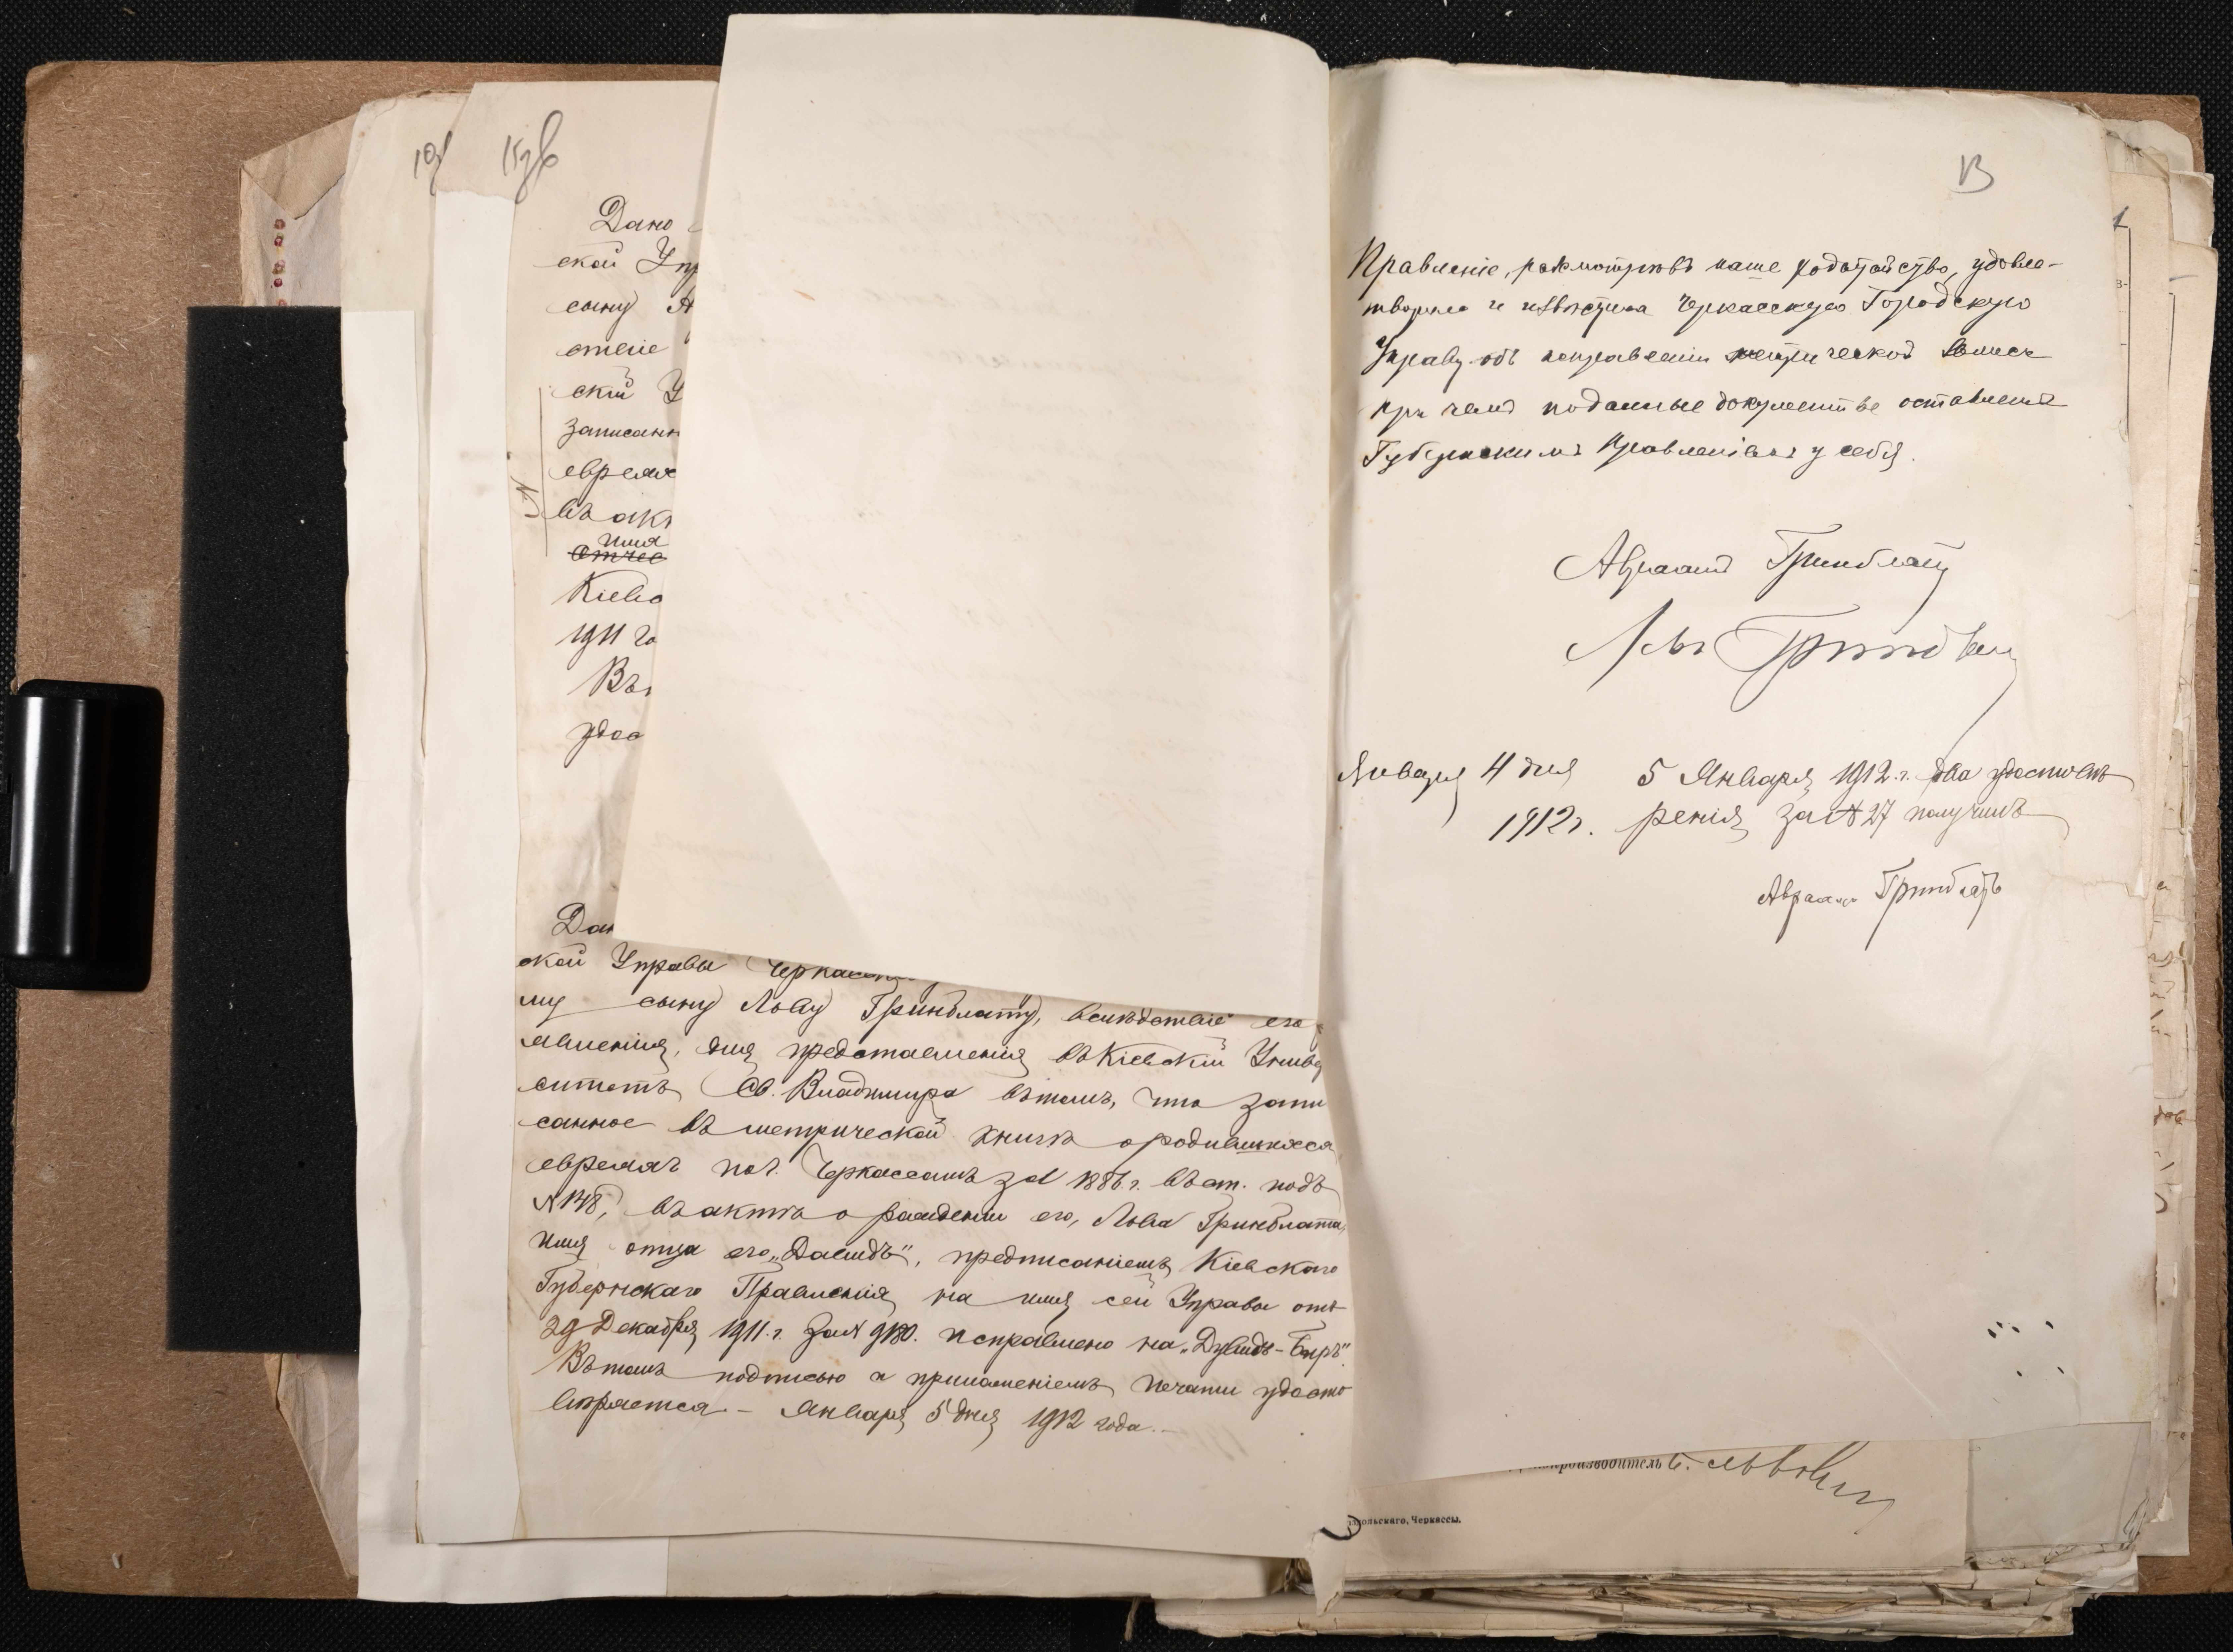 Дано
ской Упр
сыну А
ствіе
скій У
записанн
евреях
въ акт
имя
отчес
Кіевс
1911 го
Въ
удос
Дан
ской Управы Черкасск
му сыну Льву Гринблату, вслѣдствіе его
явленія, для представленія въ Кіевскій Униве
ситетъ Св. Владимира въ томъ, что запи
санное въ метрической книгѣ о родившихся
евреяхъ по г. Черкассамъ за 1886 г. въ ст. подъ
№ 148, въ актѣ о рожденіи его, Льва Гринблата,
имя отца его „Давидъ", предписаніемъ Кіевскаго
Губернскаго Правленія на имя сей Управы отъ
29 Декабря 1911 г. за № 9180. исправлено на „Дувидъ-Беръ".
Въ томъ подписью и приложеніемъ печати удосто
вѣряется – Января 5 дня 1912 года. –
13
Правленіе, разсмотрѣвъ наше ходатайство, удовле-
творило и извѣстило Черкасскую Городскую
Управу объ исправленіи метрической записи
при чемъ поданные документы оставлены
Губернскимъ Правленіемъ у себя.
Авраамъ Гринблатъ
Левъ Гринблатъ
Января 4 дня
1912 г.
5 Января 1912 г. два удостовѣ
ренія за № 27 получилъ
Авраамъ Гринблатъ
производитель
польскаго, Черкассы.